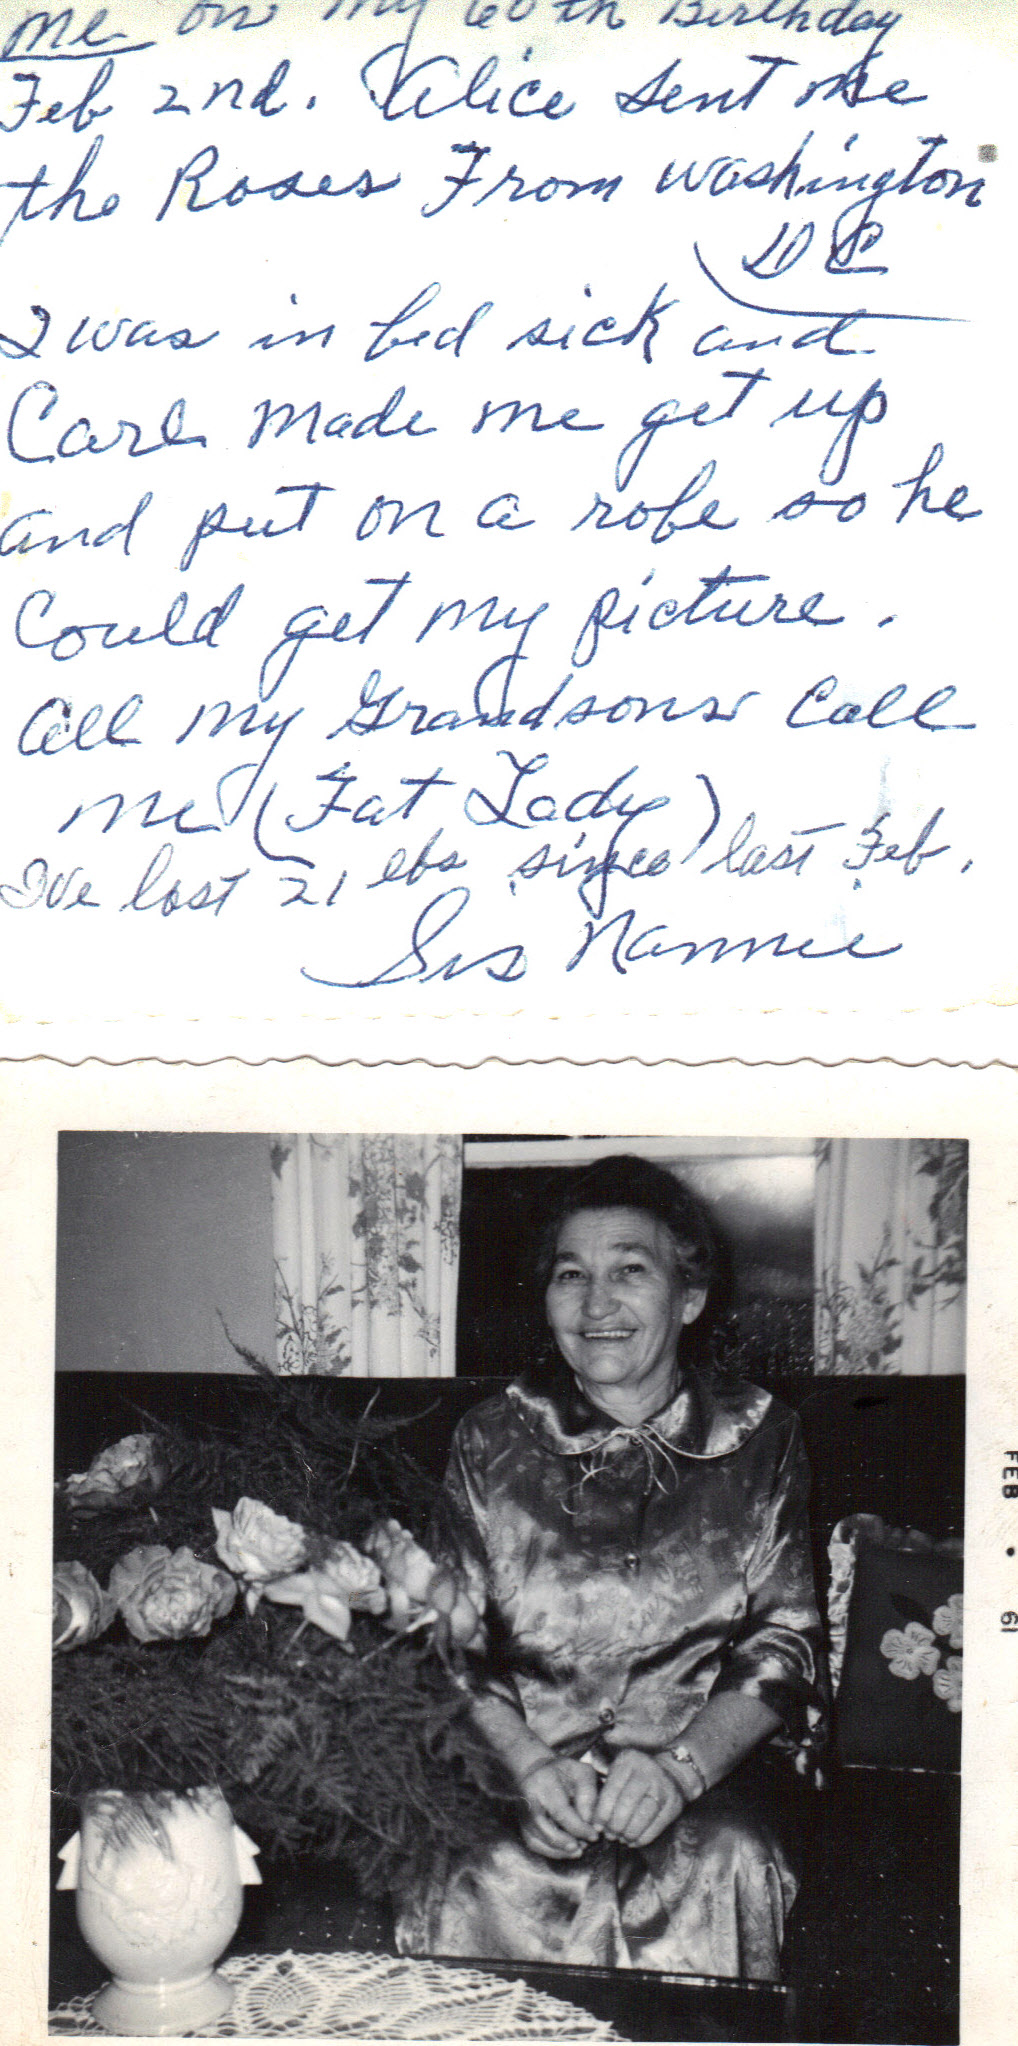 me on my 60th Birthday
Feb 2nd. Alice sent me
the Roses From washington
DC
I was in bed sick and
Carl made me get up
and put on a robe so he
Could get my picture.
All my Grandsons Call
me (Fat Lady)
I've lost 21 lbs since last Feb.
Sis Nannie
FEB • 61